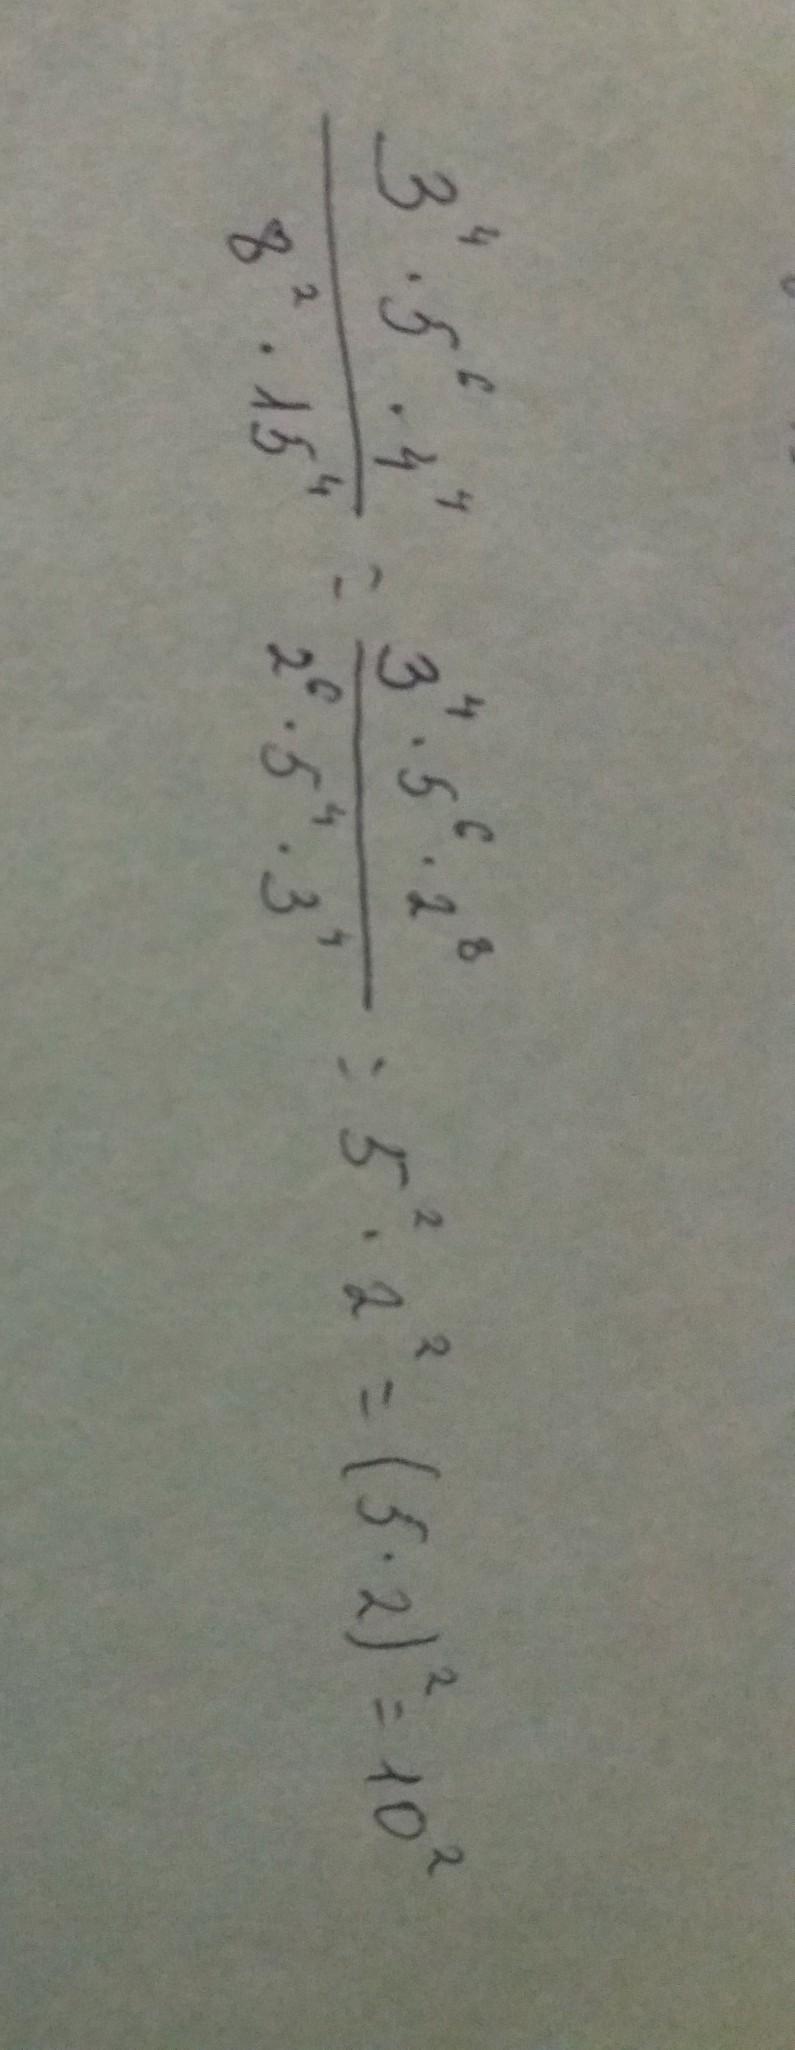 3⁴ · 5⁶ · 4⁴ / 8² · 15⁴ = 3⁴ · 5⁶ · 2⁸ / 2⁶ · 5⁴ · 3⁴ = 5² · 2² = (5 · 2)² = 10²